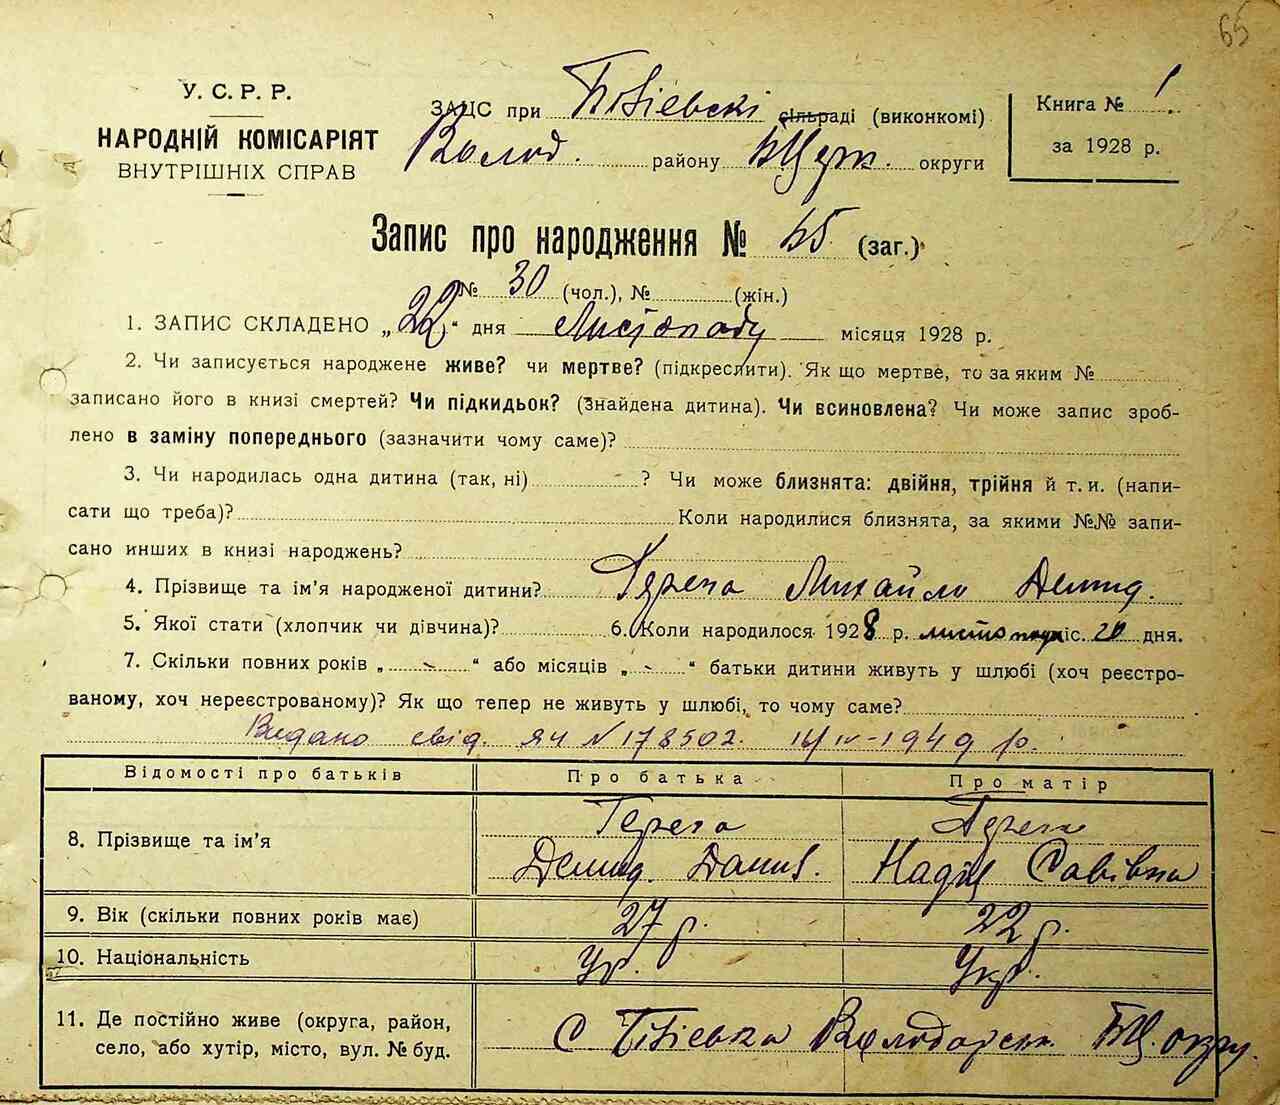 65
У. С. Р. Р.
НАРОДНІЙ КОМІСАРІЯТ
ВНУТРІШНІХ СПРАВ
ЗАЦС при сільраді (виконкомі)
Волод. району БЦерк. округи
Книга № 1
за 1928 р.
Запис про народження № 65 (заг.)
№ 30 (чол.), № (жін.)
1. ЗАПИС СКЛАДЕНО „22“ дня Листопаду місяця 1928 р.
2. Чи записується народжене живе? чи мертве? (підкреслити). Як що мертве, то за яким №
записано його в книзі смертей? Чи підкидьок? (знайдена дитина). Чи всиновлена? Чи може запис зроб-
лено в заміну попереднього (зазначити чому саме)?
3. Чи народилась одна дитина (так, ні) ? Чи може близнята: двійня, трійня й т. и. (напи-
сати що треба)? Коли народилися близнята, за якими №№ запи-
сано инших в книзі народжень?
4. Прізвище та ім’я народженої дитини? Герега Михайло Демид.
5. Якої стати (хлопчик чи дівчина)? 6. Коли народилося 1928 р. листопаду міс. 20 дня.
7. Скільки повних років „ “ або місяців „ “ батьки дитини живуть у шлюбі (хоч реєстро-
ваному, хоч нереєстрованому)? Як що тепер не живуть у шлюбі, то чому саме?
Видано свід. ЯЧ N 178502. 16/IV-1949 р.
Відомості про батьків Про батька Про матір
8. Прізвище та ім’я Герега Герега
Демид. Данил. Надія Савівна
9. Вік (скільки повних років має) 27 р. 22 р.
10. Національність Ук. Укр.
11. Де постійно живе (округа, район,
село, або хутір, місто, вул. № буд.
С Володарськ. БЦ. окру.